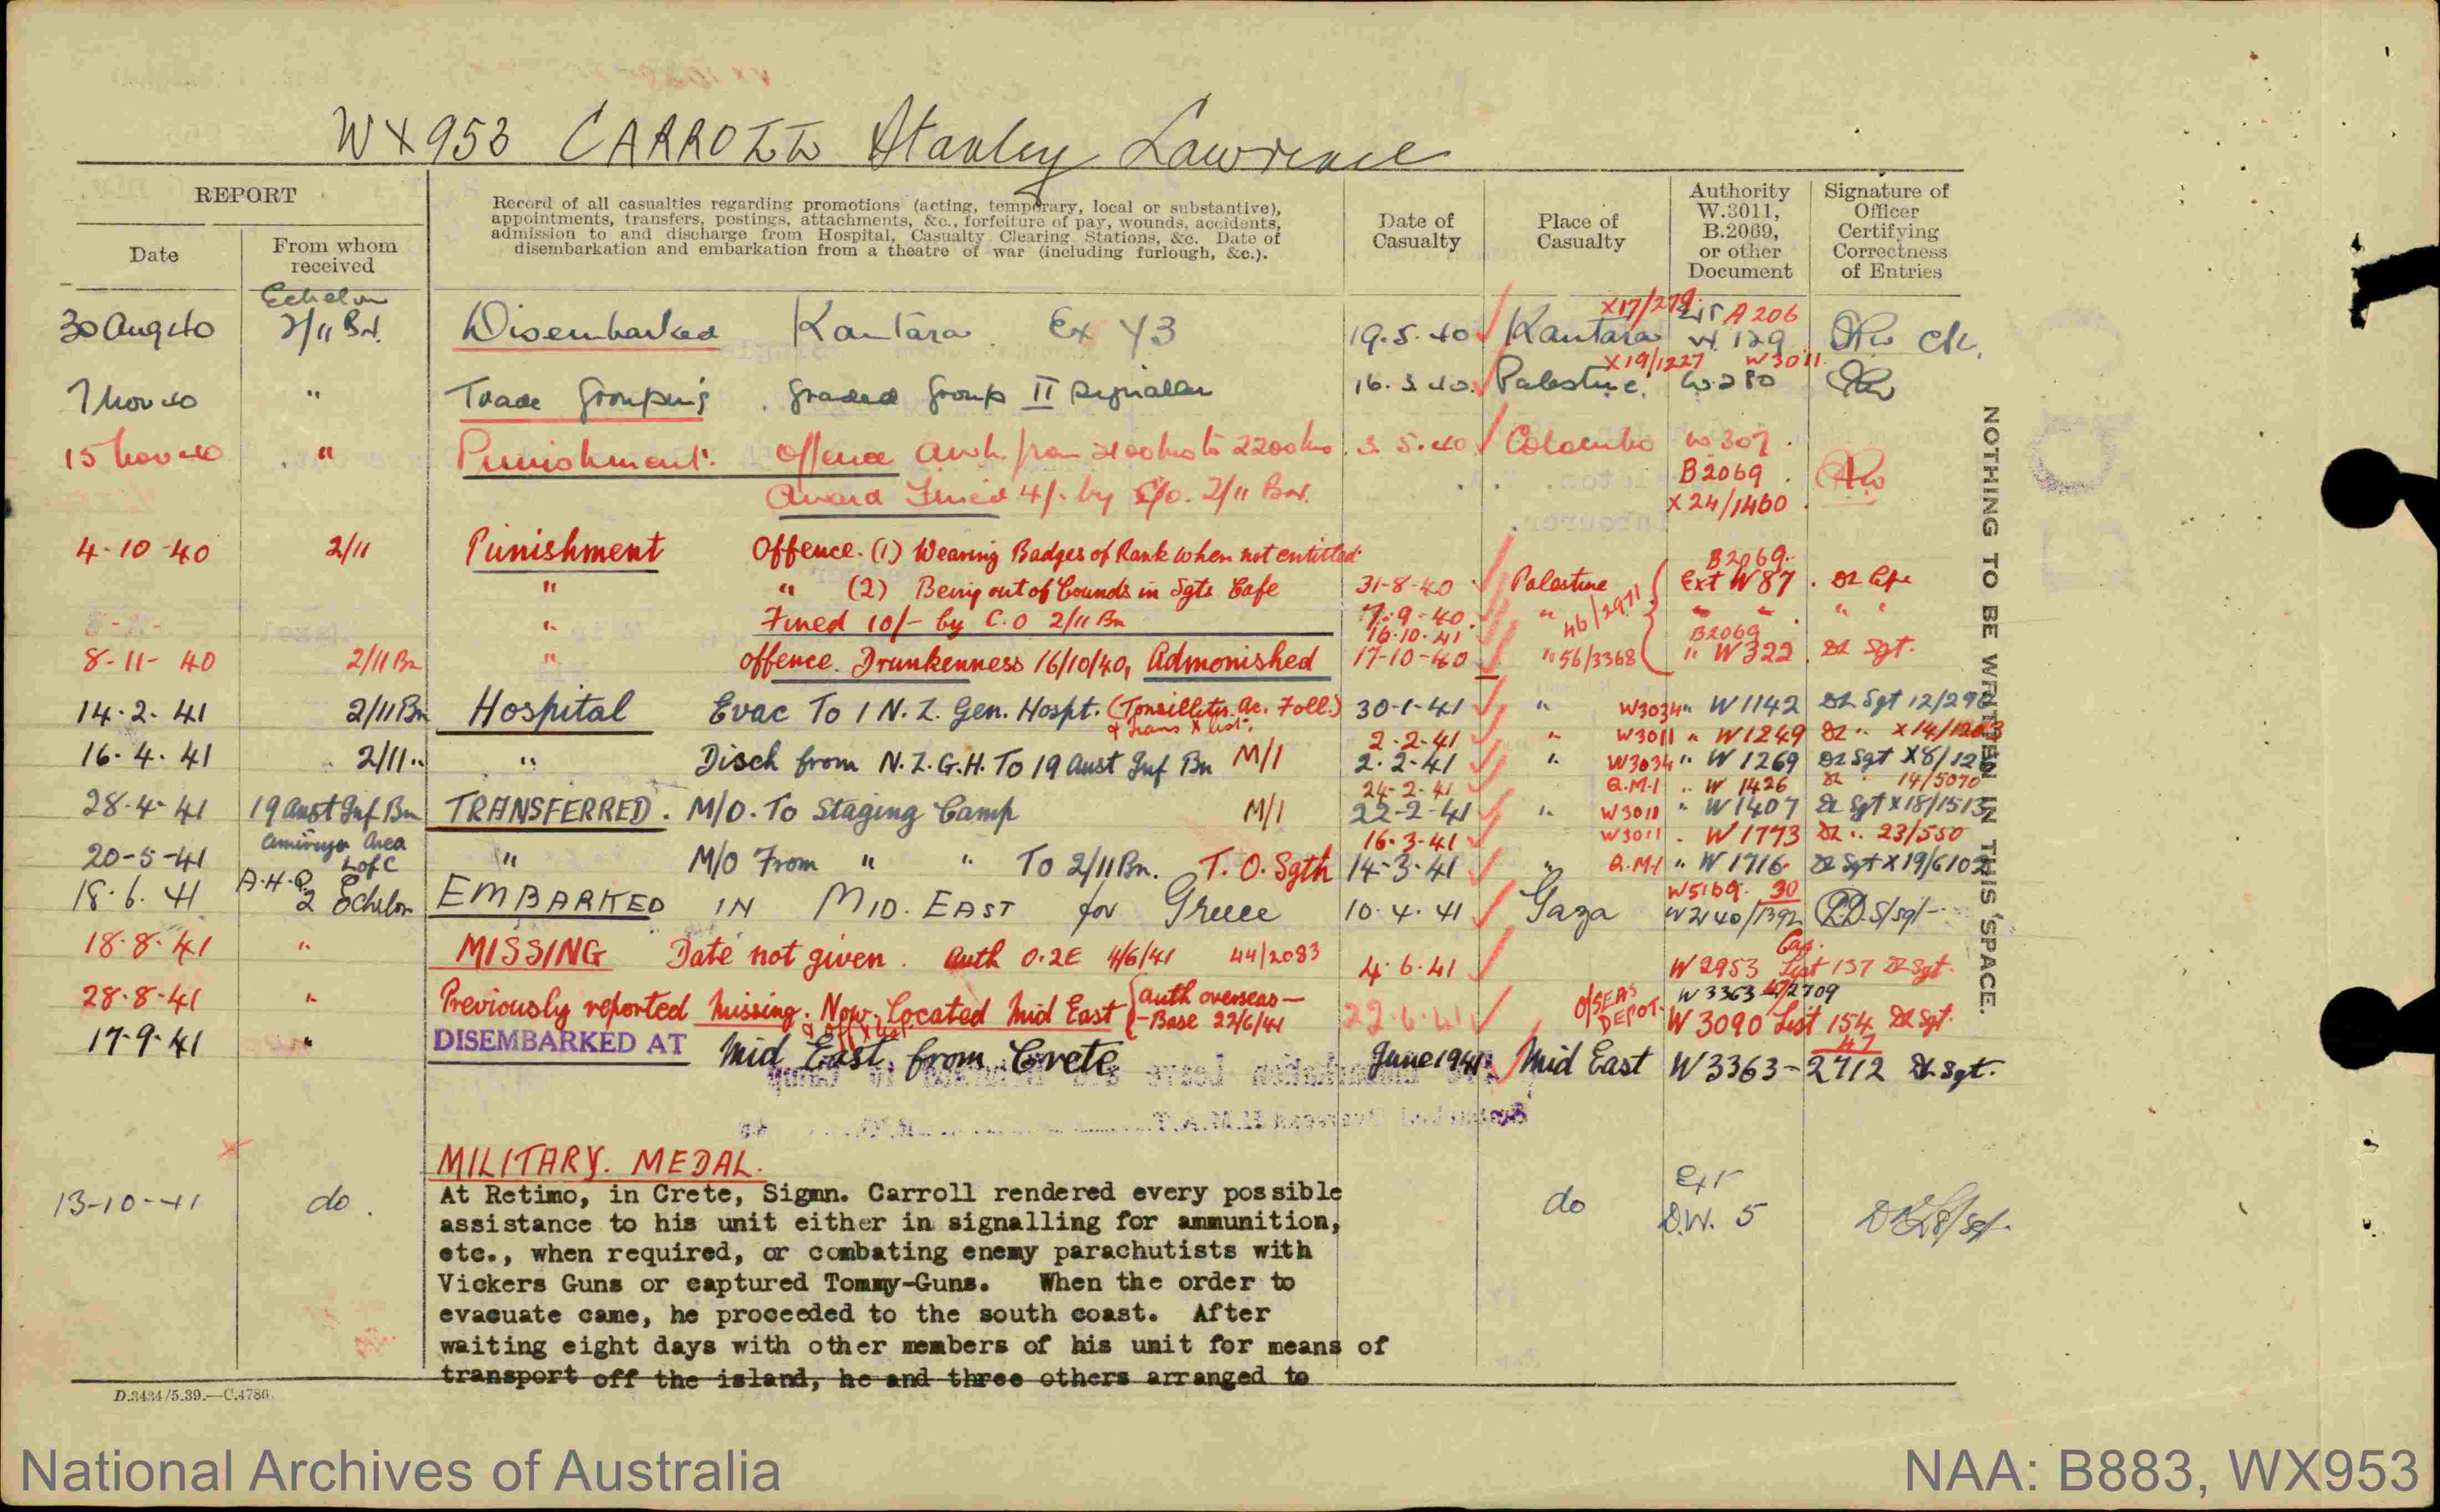 WX953 CARROLL Stanley Lawrence
REPORT
Date
From whom received
Record of all casualties regarding promotions (acting, temporary, local or substantive),
appointments, transfers, postings, attachments, &c., forfeiture of pay, wounds, accidents,
admission to and discharge from Hospital, Casualty Clearing Stations, &c. Date of
disembarkation and embarkation from a theatre of war (including furlough, &c.).
Date of Casualty
Place of Casualty
Authority W.3011, B.2069, or other Document
Signature of Officer Certifying Correctness of Entries
30 Aug 40 Echelon 2/11 Bn. Disembarked Kantara Ex Y3 19.5.40 Kantara X17/279 A206 W 129
7 Nov 40 " Trade Grouping. Graded Group II Signaller Palestine X19/1227 W3011 W280
15 Nov 40 " Punishment. Offence awl. from 2100 hrs to 2200 hrs. 3.5.40 Colombo W 307.
Award Fined 4/- by C/o. 2/11 Bn. B2069 X24/1460
4-10-40 2/11 Punishment Offence. (1) Wearing Badges of Rank when not entitled. B2069.
" " (2) Being out of Bounds in Sgts Cafe 31-8-40 Palestine Ext W 87
" Fined 10/- by C.O 2/11 Bn 7-9-40 " 46/2971 " "
16-10-41 B2069
8-11-40 2/11 Bn " offence. Drunkenness 16/10/40, Admonished 17-10-40 " 56/3368 " W322 Sgt.
14.2.41 2/11 Bn Hospital Evac To 1 N.Z. Gen. Hospt. (Tonsillitis Ac. Foll.) 30-1-41 " W3034 " W1142 Sgt 12/292
& trans X list. 2-2-41 " W3011 " W1249
16.4.41 2/11 " " Disch from N.Z.G.H. To 19 Aust Inf Bn M/I 2.2-41 " W3034 " W1269 Sgt X8/12
24-2-41 Q.M.1 " W 1426 14/5070
28.4.41 19 Aust Inf Bn TRANSFERRED. M/O. To Staging Camp M/I 22-2-41 " W3011 " W1407 Sgt X18/1513
16-3-41 W3011 . W1773 23/550
20-5-41 Amiriya Area L of C " M/O From " " To 2/11 Bn. T.O. Sgth 14-3-41 " Q.M.1 " W1716 Sgt X19/6102
18.6.41 A.H.Q. 2 Echelon EMBARKED IN MID. EAST for Greece 10.4.41 Gaza W5169. 30 W2140/1392 S/Sgt
18.8.41 " MISSING Date not given. Auth O.2E 4/6/41 44/2083 4.6.41 W2953 Cas. List 137 Sgt.
28-8-41 " Previously reported Missing. Now Located Mid East (auth overseas — Base 22/6/41 22.6.41 O/SEAS DEPOT. W3363 47/2709 W3090 List 154 Sgt.
17-9-41 " DISEMBARKED AT Mid East. from Crete June 1941 Mid East W3363-47 2712 Sgt.
MILITARY. MEDAL.
13-10-41 do. do Ext D.W. 5
At Retimo, in Crete, Sigmn. Carroll rendered every possible
assistance to his unit either in signalling for ammunition,
etc., when required, or combating enemy parachutists with
Vickers Guns or captured Tommy-Guns. When the order to
evacuate came, he proceeded to the south coast. After
waiting eight days with other members of his unit for means of
transport off the island, he and three others arranged to
NOTHING TO BE WRITTEN IN THIS SPACE.
D.3434/5.39.—C.4786.
National Archives of Australia
NAA: B883, WX953